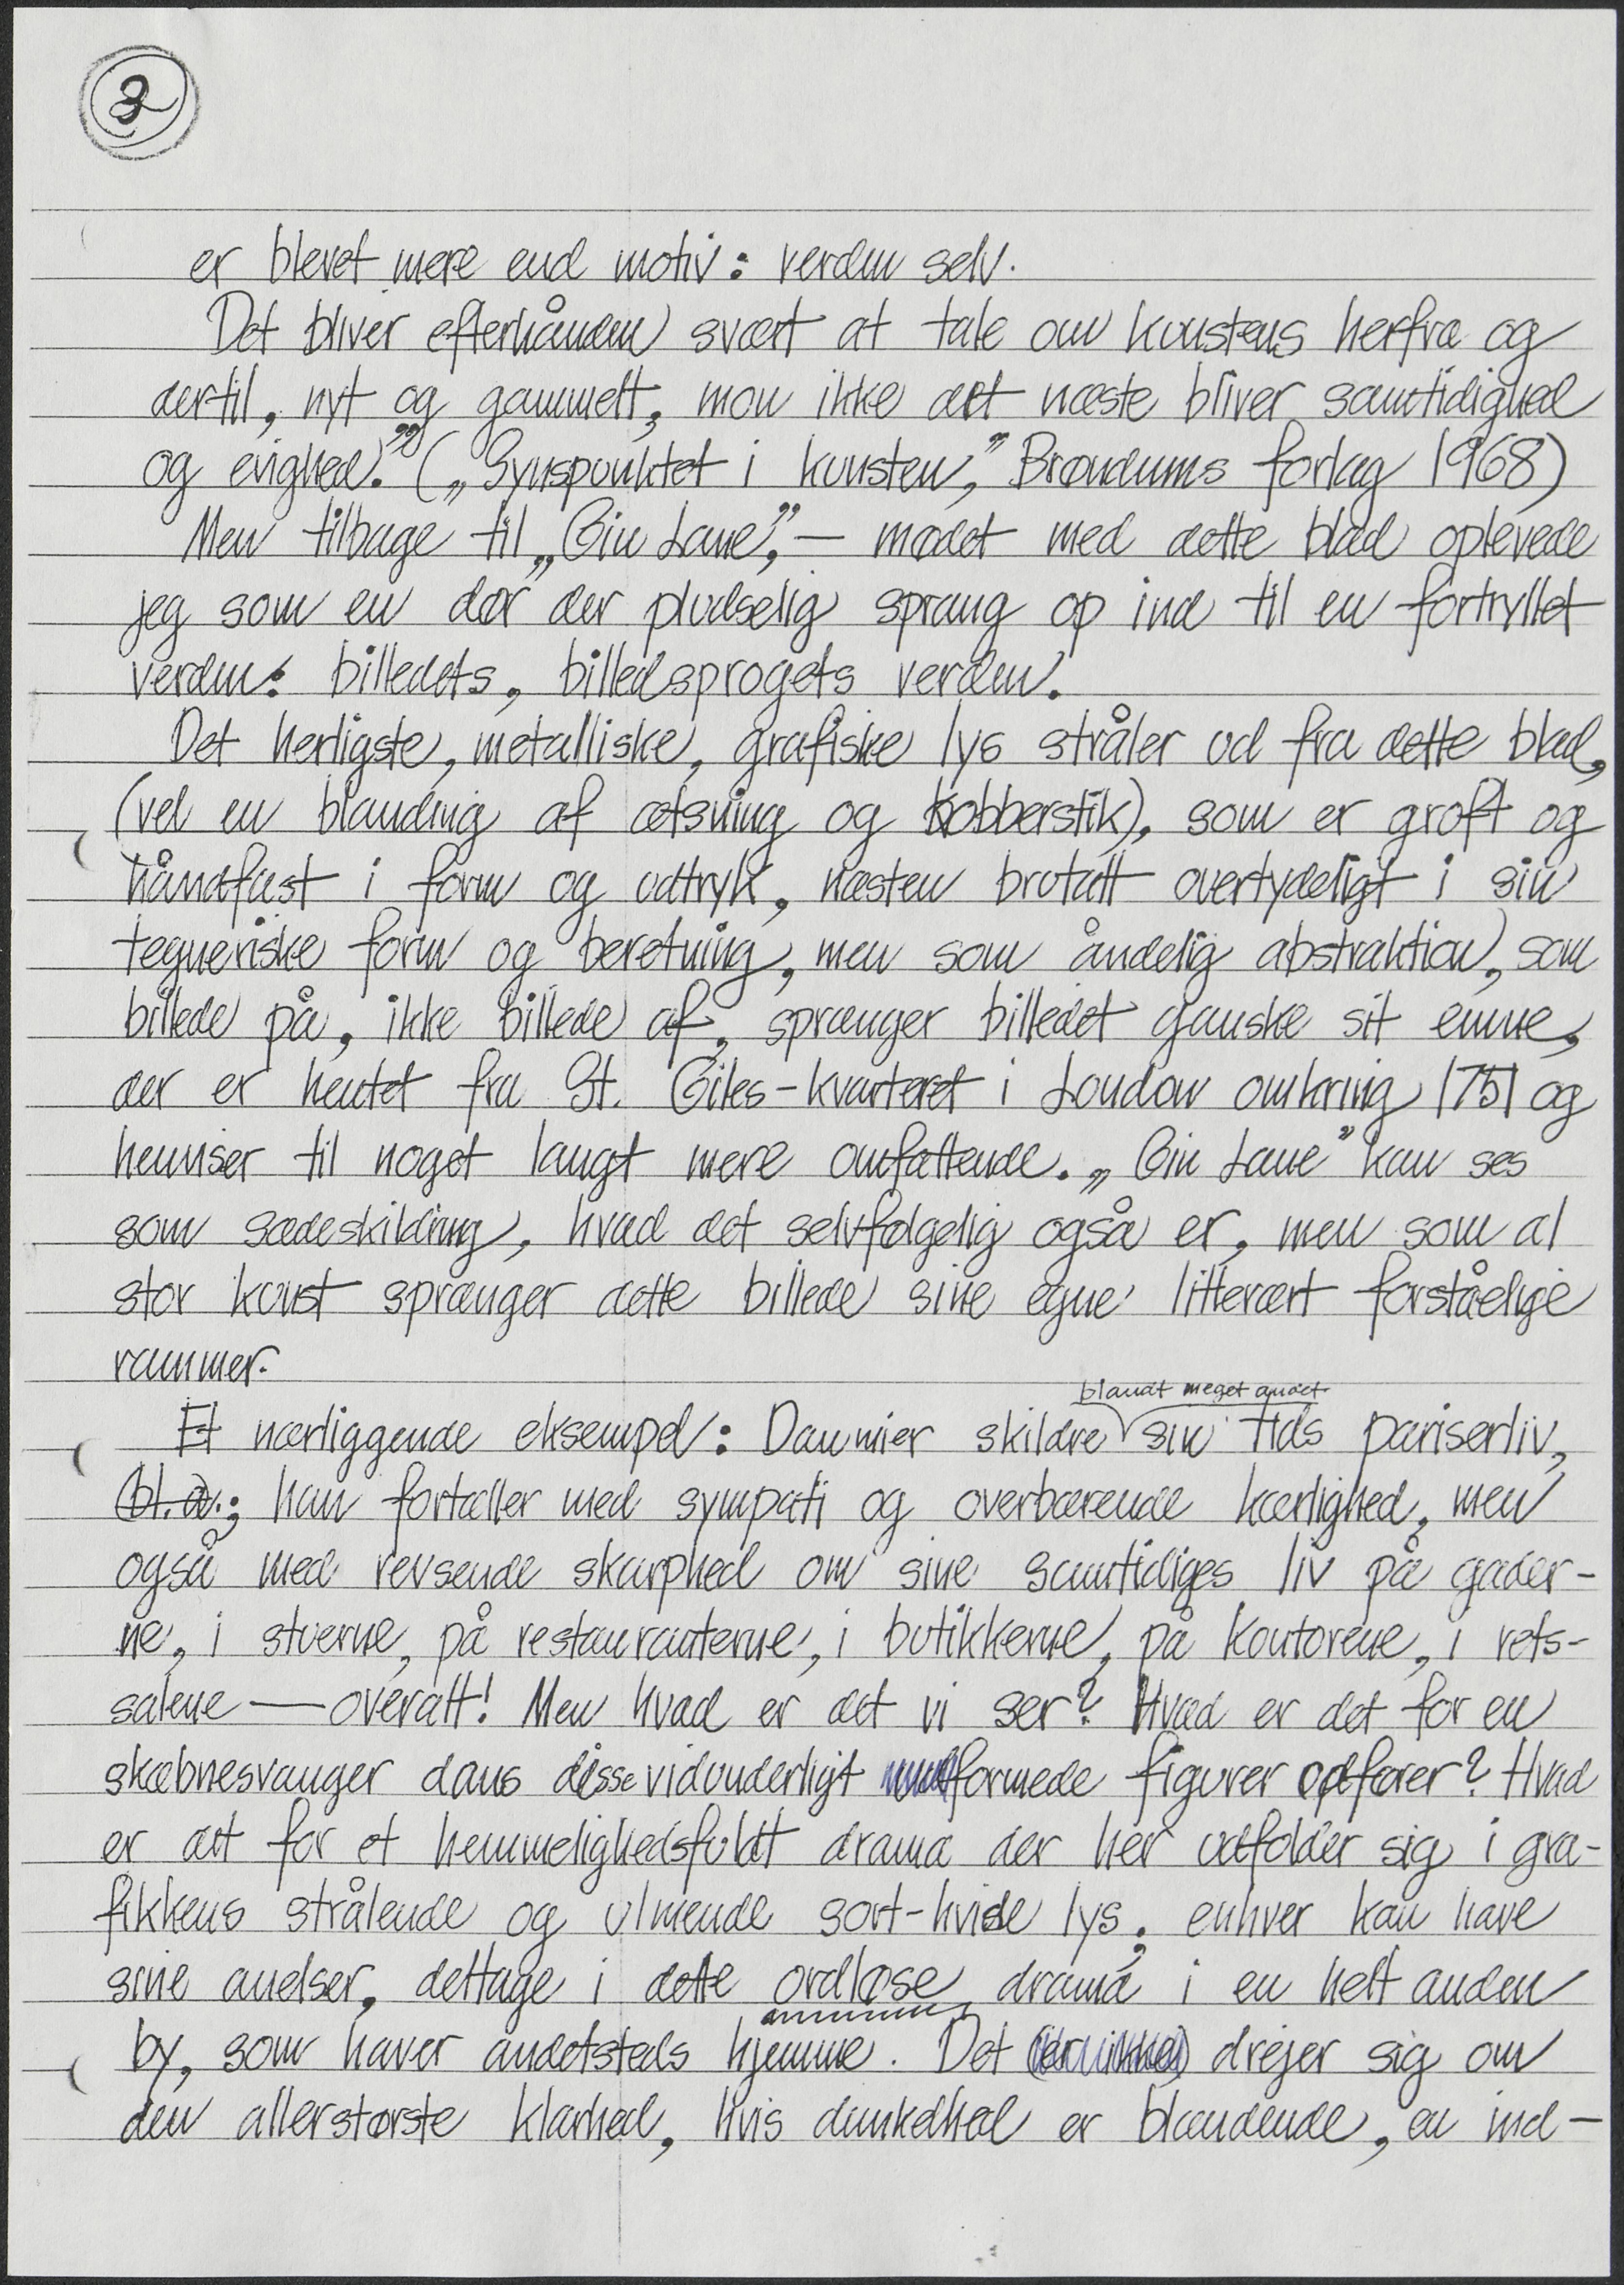 2
er blevet mere end motiv: verden selv.
Det bliver efterhånden svært at tale om kunstens herfra og
dertil, nyt og gammelt, mon ikke det næste bliver samtidighed
og evighed." („Synspunktet i kunsten," Brøndums forlag 1968)
Men tilbage til „Gin Lane", — mødet med dette blad oplevede
jeg som en dør der pludselig sprang op ind til en fortryllet
verden: billedets, billedsprogets verden.
Det herligste, metalliske, grafiske lys stråler ud fra dette blad,
(vel en blanding af ætsning og kobberstik), som er groft og
håndfast i form og udtryk, næsten brutalt overtydeligt i sin
tegneriske form og beretning, men som åndelig abstraktion, som
billede på, ikke billede af, sprænger billedet ganske sit emne,
der er hentet fra St. Giles-kvarteret i London omkring 1751 og
henviser til noget langt mere omfattende. „Gin Lane" kan ses
som sædeskildring, hvad det selvfølgelig også er, men som al
stor kunst sprænger dette billede sine egne litterært forståelige
rammer.
blandt meget andet
Et nærliggende eksempel: Daumier skildre sin tids pariserliv,
bl.a.; han fortæller med sympati og overbærende kærlighed, men
også med revsende skarphed om sine samtidiges liv på gader-
ne, i stuerne, på restauranterne, i butikkerne, på kontorene, i rets-
salene — overalt! Men hvad er det vi ser? Hvad er det for en
skæbnesvanger dans disse vidunderligt formede figurer opfører? Hvad
er det for et hemmelighedsfuldt drama der her udfolder sig i gra-
fikkens strålende og ulmende sort-hvide lys; enhver kan have
sine anelser, deltage i dette ordløse drama i en helt anden
by, som haver andetsteds hjemme. Det drejer sig om
den allerstørste klarhed, hvis dunkelhed er blændende, en ind-